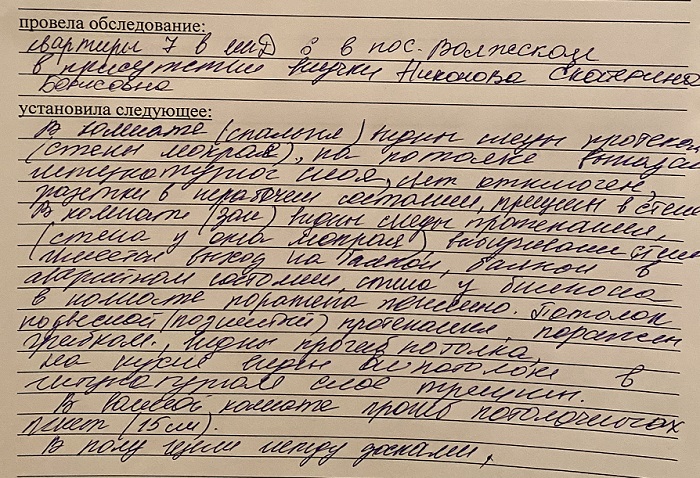 провела обследование:
квартиры 7 в 8 в пос. Волжском
в присутствии внучки Никонова Екатерина
Борисовна
установила следующее:
В комнате (спальня) видны следы протекан
(стены мокрая), на потолке
штукатурног слоя, свет отключен,
розетки в нерабочем состоянии, трещин в стен
В комнате (зал) видны следы протекания,
(стена у окна мокрая)
имеется выход на балкон, балкон в
аварийном состоянии, стена у
в комнате поражена плесенью. Потолок
подвесной протекания, поражен
грибком, видны прогиб потолка
на кухне виден в
штукатурном слое трещин.
В комнате прогиб потолочных
плит (15 см).
В полу щели между досками,